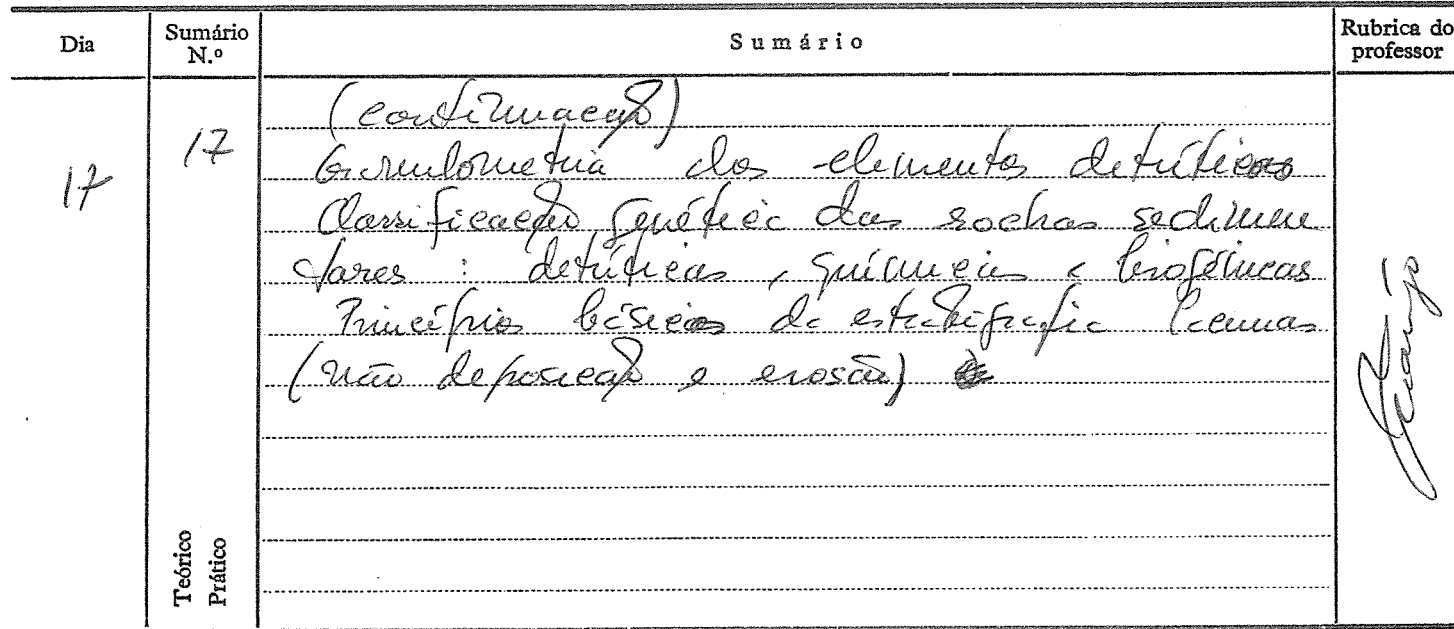 Dia
Sumário N.º
Sumário
Rubrica do professor
17
17
(continuação)
Granulometria dos elementos detríticos
Classificação genética das rochas sedimen
tares : detríticas, químicas e biogénicas
Princípios básicos da estratigrafia lacunas
(não deposição e erosão)
Teórico
Prático